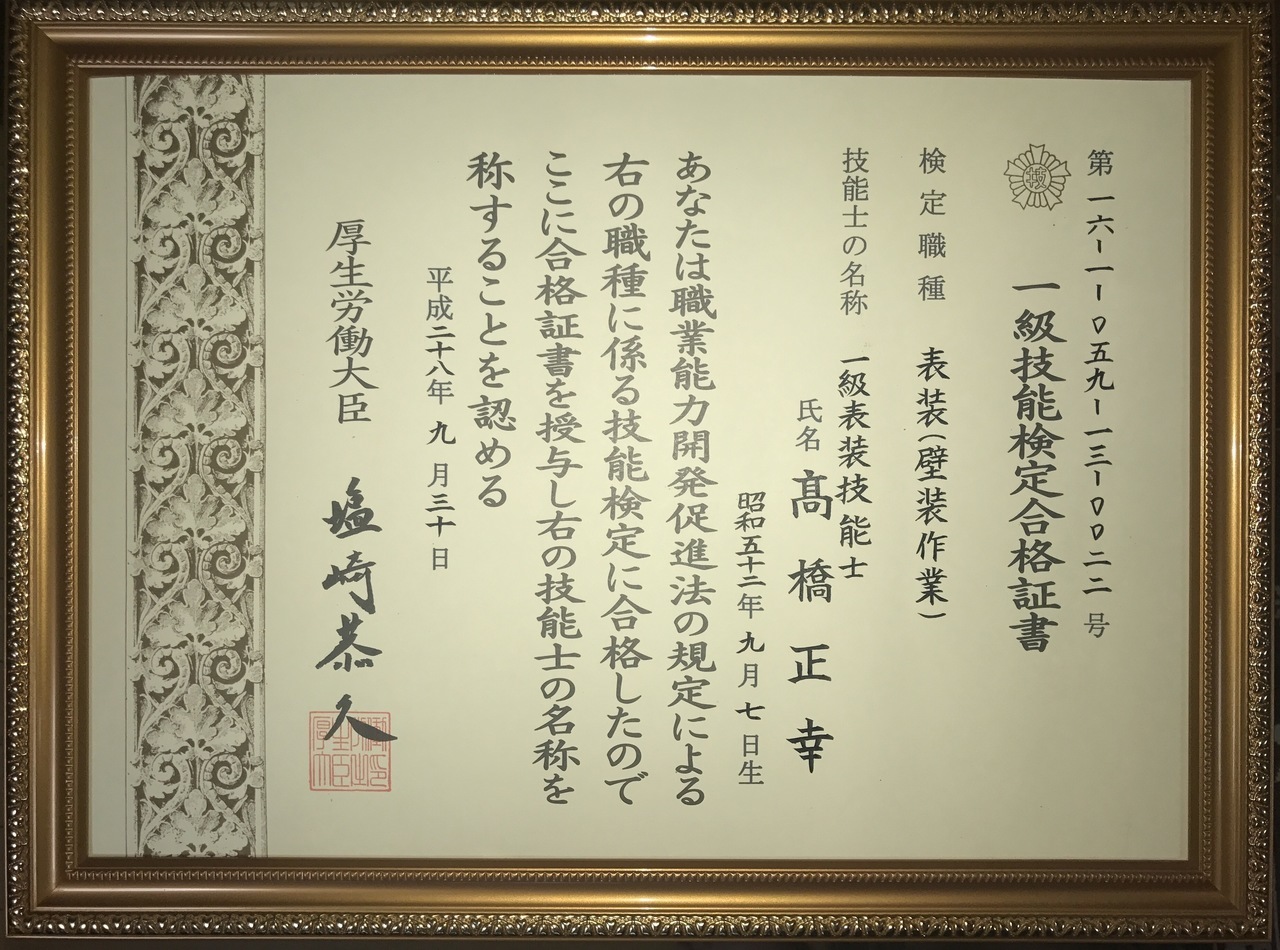 第一六-一-〇五九-一三-〇〇二二号
一級技能検定合格証書
検定職種 表装(壁装作業)
技能士の名称 一級表装技能士
氏名 髙橋正幸
昭和五十二年九月七日生
あなたは職業能力開発促進法の規定による
右の職種に係る技能検定に合格したので
ここに合格証書を授与し右の技能士の名称を
称することを認める
平成二十八年九月三十日
厚生労働大臣 塩崎恭久